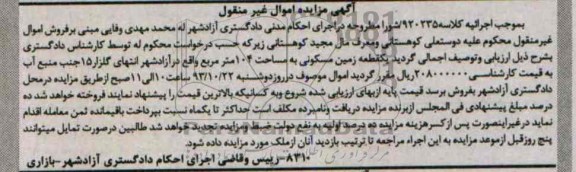 آگهی مزایده اموال غیر منقول
بموجب اجرائیه کلاسه ۹۲۰۲۳۵/شورا مطروحه دراجرای احکام مدنی دادگستری آزادشهر له محمد مهدی وفایی مبنی برفروش اموال
غیرمنقول محکوم علیه دوستعلی کوهستانی ومعرف مال مجید کوهستانی زیرکه حسب درخواست محکوم له توسط کارشناس دادگستری
بشرح ذیل ارزیابی وتوصیف اجمالی گردید یکقطعه زمین مسکونی به مساحت ۱۰۴متر مربع واقع درآزادشهر انتهای گلزار۱۵جنب منبع آب
به قیمت کارشناسی۲۰۸۰۰۰۰۰۰ریال مقرر گردید اموال موصوف درروزدوشنبه ۹۳/۱۰/۲۲ ساعت۱۰الی۱۱صبح ازطریق مزایده درمحل
دادگستری آزادشهر بفروش برسد قیمت پایه ازبهای ارزیابی شده شروع وبه کسانیکه بالاترین قیمت را پیشنهاد نمایند فروخته خواهد شد ده
درصد مبلغ پیشنهادی فی المجلس ازبرنده مزایده دریافت ونامبرده مکلف است حداکثر تا یکماه نسبت بپرداخت باقیمانده ثمن معامله اقدام
نماید درغیراینصورت پس از کسرهزینه مزایده ده درصد اولیه به نفع دولت ضبط و مزایده تجدید خواهد شد طالبین درصورت تمایل میتوانند
پنج روزقبل ازموعد مزایده به این اجراء مراجعه تا ترتیب بازدید آنان ازملک مورد مزایده داده شود.
۸۳۱۰-رییس وقاضی اجرای احکام دادگستری آزادشهر-بازاری